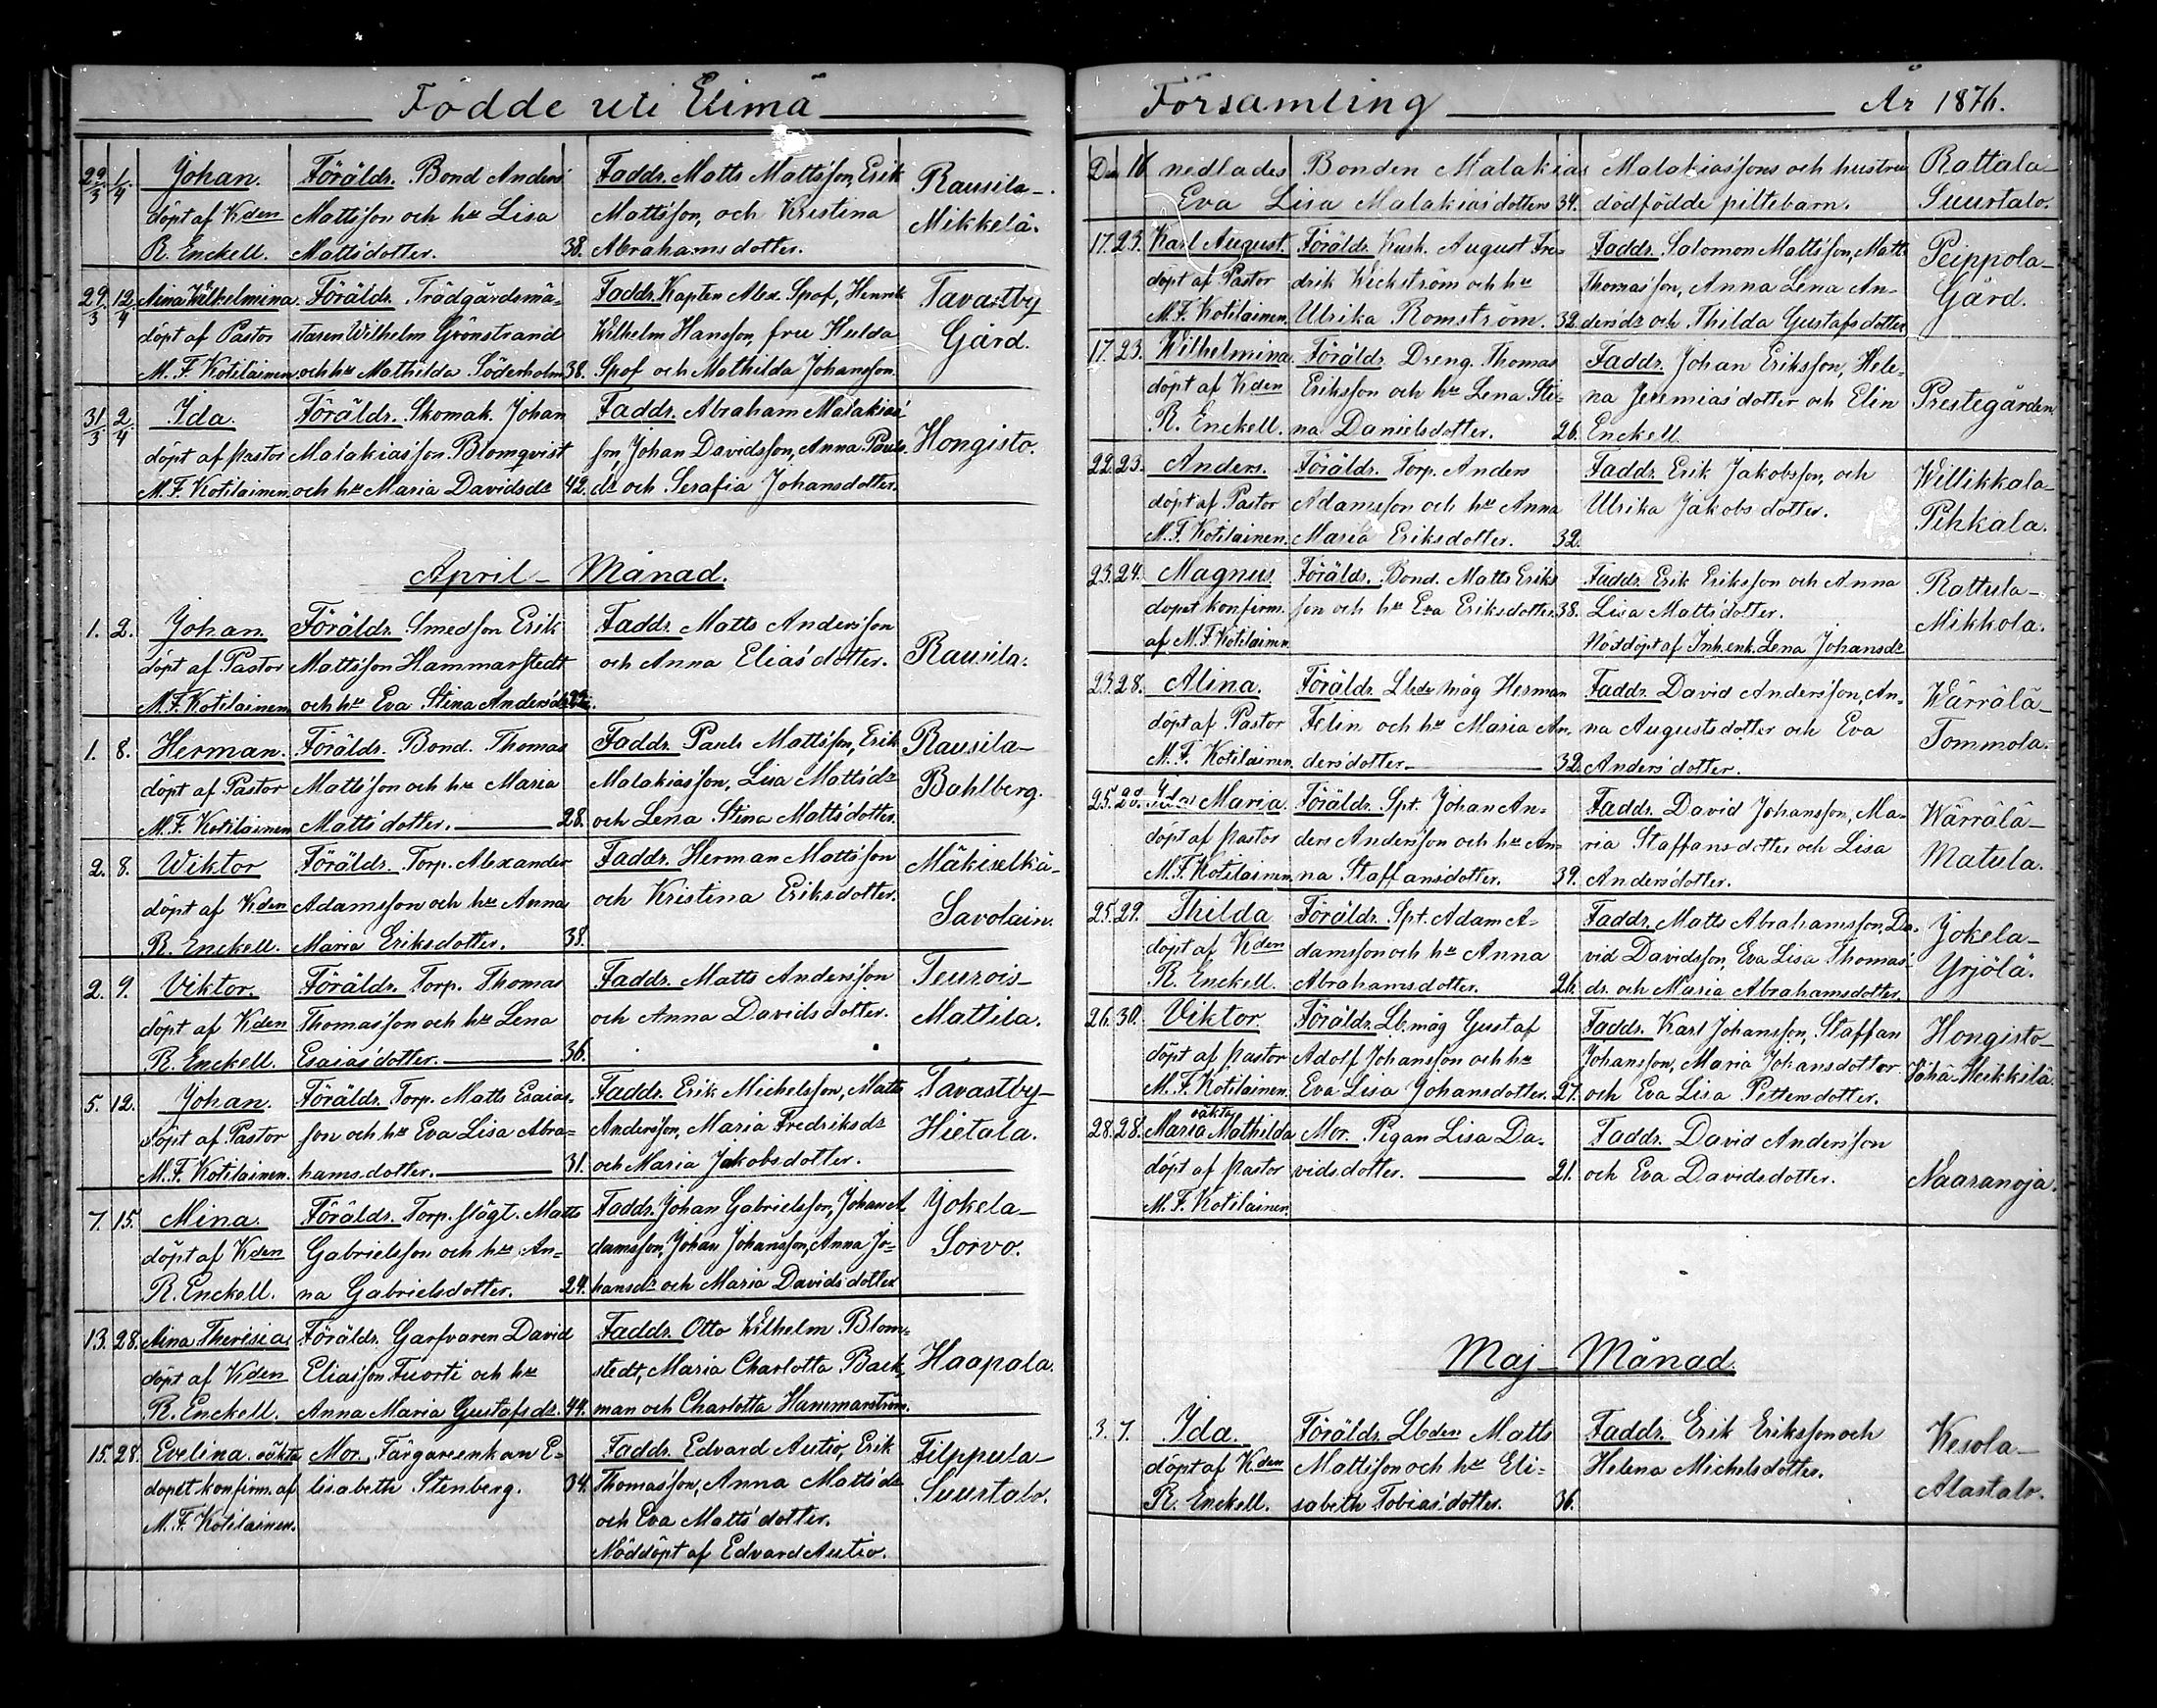 Födde uti Elimä
29/3 1/4 Johan. Föräldr. Bond Anders Faddr. Matts Mattsson, Erik Rausila-
döpt af Kden Mattsson och hu Lisa Mattsson, och Kristina Mikkelä.
R. Enckell. Mattsdotter. 38. Abrahamsdotter.
29/3 12/4 Aina Wilhelmina. Föräldr. Trädgårdsmä- Faddr. Kapten Alex. Spof, Henrik Tavastby
döpt af Pastor staren Wilhelm Grönstrand Wilhelm Hansson, fru Hulda Gård.
M. F. Kotilainen. och hu Mathilda Söderholm 38. Spof och Mathilda Johansson.
31/3 2/4 Ida. Föräldr. Skomak. Johan Faddr. Abraham Malakias
döpt af pastor Malakiasson Blomqvist son, Johan Davidsson, Anna Pauls Hongisto.
M. F. Kotilainen. och hu Maria Davidsdr 42. dr och Serafia Johansdotter.
April- Månad.
1. 2. Johan. Föräldr. Smedson Erik Faddr. Matts Andersson
döpt af Pastor Mattsson Hammarstedt och Anna Eliasdotter. Rausila.
M. F. Kotilainen och hu Eva Stina Andersdr 22.
1. 8. Herman. Föräldr. Bond. Thomas Faddr. Pauls Mattsson, Erik Rausila-
döpt af Pastor Mattsson och hu Maria Malakiasson, Lisa Mattsdr Bahlberg.
M. F. Kotilainen Mattsdotter. 28. och Lena Stina Mattsdotter.
2. 8. Wiktor Föräldr. Torp. Alexander Faddr. Herman Mattsson Mäkiselkä-
döpt af Kden Adamsson och hu Anna och Kristina Eriksdotter. Savolain.
R. Enckell. Maria Eriksdotter. 38.
2. 9. Viktor. Föräldr. Torp. Thomas Faddr. Matts Andersson Teurois-
döpt af Kden Thomasson och hu Lena och Anna Davidsdotter. Mattila.
R. Enckell. Esaiasdotter. 36.
5. 12. Johan. Föräldr. Torp. Matts Esaias- Faddr. Erik Michelsson, Matts Tavastby-
döpt af Pastor son och hu Eva Lisa Abra- Andersson, Maria Fredriksdr Hietala.
M. F. Kotilainen. hamsdotter. 31. och Maria Jakobsdotter.
7. 15. Mina. Föräldr. Torp. slögt. Matts Faddr. Johan Gabrielsson, Johan A. Jokela-
döpt af Kden Gabrielsson och hu An- damsson, Johan Johansson, Anna Jo- Sorvo.
R. Enckell. na Gabrielsdotter. 24. hansdr och Maria Davidsdotter
13. 28. Aina Therisia. Föräldr. Garfvaren David Faddr. Otto Wilhelm Blom-
döpt af Kden Eliasson Tuorti och hu stedt, Maria Charlotta Back- Haapala.
R. Enckell. Anna Maria Gustafsdr. 44. man och Charlotta Hammarström.
15. 28. Evelina. oäkta Mor. Färgareenkan E- Faddr. Edvard Autio, Erik Filppula-
dopet konfirm. af lisabeth Stenberg. 34. Thomasson, Anna Mattsdr Suurtalo.
M. F. Kotilainen. och Eva Mattsdotter.
Nöddöpt af Edvard Autio.
Församling År 1876.
Den 16 nedlades Bonden Malakias Malakiassons och hustru Rattala-
Eva Lisa Malakiasdotters 34. dödfödde piltebarn. Suurtalo.
17. 23. Karl August. Föräldr. Kusk. August Fre- Faddr. Salomon Mattsson, Matts Peippola-
döpt af Pastor drik Wickström och hu Thomasson, Anna Lena An- Gård.
M. F. Kotilainen. Ulrika Romström. 32. dersdr och Thilda Gustafsdotter
17. 23. Wilhelmina. Föräldr. Dreng. Thomas Faddr. Johan Eriksson, Hele-
döpt af Kden Eriksson och hu Lena Sti- na Jeremiasdotter och Elin Prestegården
R. Enckell. na Danielsdotter. 26. Enckell.
22. 23. Anders. Föräldr. Torp. Anders Faddr. Erik Jakobsson, och Willikkala-
döpt af Pastor Adamsson och hu Anna Ulrika Jakobsdotter. Pihkala.
M. F. Kotilainen. Maria Eriksdotter. 32.
23. 24. Magnus Föräldr. Bond. Matts Eriks Faddr. Erik Eriksson och Anna Rattula-
dopet konfirm. son och hu Eva Eriksdotter. 38. Lisa Mattsdotter. Mikkola.
af M. F. Kotilainen Nöddöpt af Inh.enk. Lena Johansdr
23. 28. Alina. Föräldr. Lbdr måg Herman Faddr. David Andersson, An- Wärrälä-
döpt af Pastor Felin och hu Maria An- na Augustsdotter och Eva Tommola.
M. F. Kotilainen. dersdotter. 32. Andersdotter.
25. 28. Ida Maria. Föräldr. Spt. Johan An- Faddr. David Johansson, Ma- Wärrälä-
döpt af pastor ders Andersson och hu An- ria Staffansdotter och Lisa Matula.
M. F. Kotilainen. na Staffansdotter. 39. Andersdotter.
25. 29. Thilda Föräldr. Spt. Adam A- Faddr. Matts Abrahamsson, Da- Jokela-
döpt af Kden damsson och hu Anna vid Davidsson, Eva Lisa Thomas- Yrjölä.
R. Enckell. Abrahamsdotter. 26. dr. och Maria Abrahamsdotter.
26. 30. Viktor Föräldr. Lb. måg Gustaf Faddr. Karl Johansson, Staffan Hongisto-
döpt af pastor Adolf Johansson och hu Johansson, Maria Johansdotter Vähä-Heikkilä.
M. F. Kotilainen. Eva Lisa Johansdotter. 27. och Eva Lisa Pettersdotter.
28. 28. Maria Mathilda oäkta Mor. Pigan Lisa Da- Faddr. David Andersson
döpt af pastor vidsdotter. 21. och Eva Davidsdotter. Naaranoja.
M. F. Kotilainen.
Maj- Månad.
3. 7. Ida. Föräldr. Lbden Matts Faddr. Erik Eriksson och Kesola-
döpt af Kden Mattsson och hu Eli- Helena Michelsdotter. Alastalo.
R. Enckell. sabeth Tobiasdotter. 36.